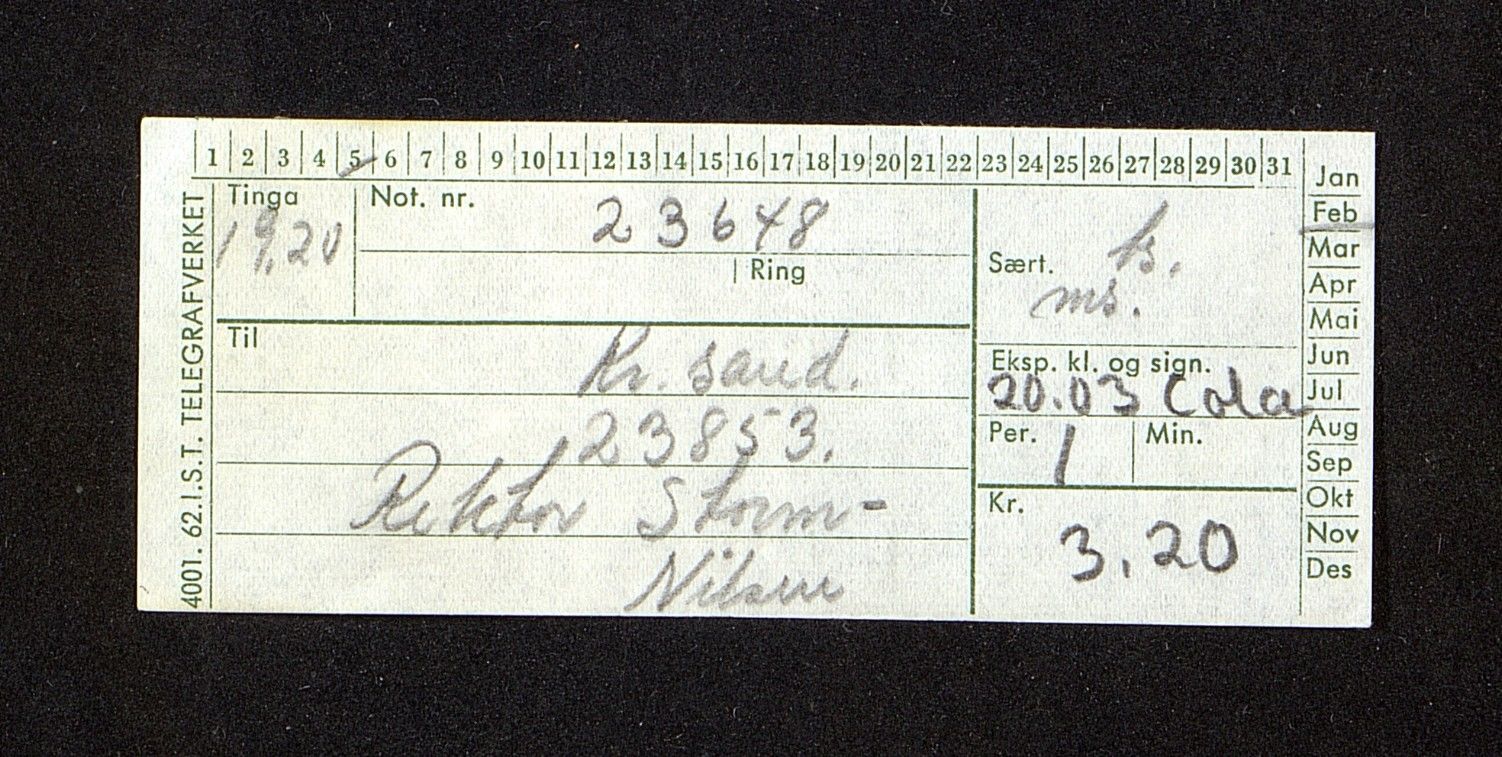 1 2 3 4 5 6 7 8 9 10 11 12 13 14 15 16 17 18 19 20 21 22 23 24 25 26 27 28 29 30 31
Jan
Feb
Mar
Apr
Mai
Jun
Jul
Aug
Sep
Okt
Nov
Des
4001. 62.I.S.T. TELEGRAFVERKET
Tinga
19.20
Not. nr. 23648
Ring
Til
Kr. sand.
23853.
Rektor Storm-
Nilsen
Sært.
ms.
Eksp. kl. og sign.
20.03 Cola
Per. 1 Min.
Kr.
3.20